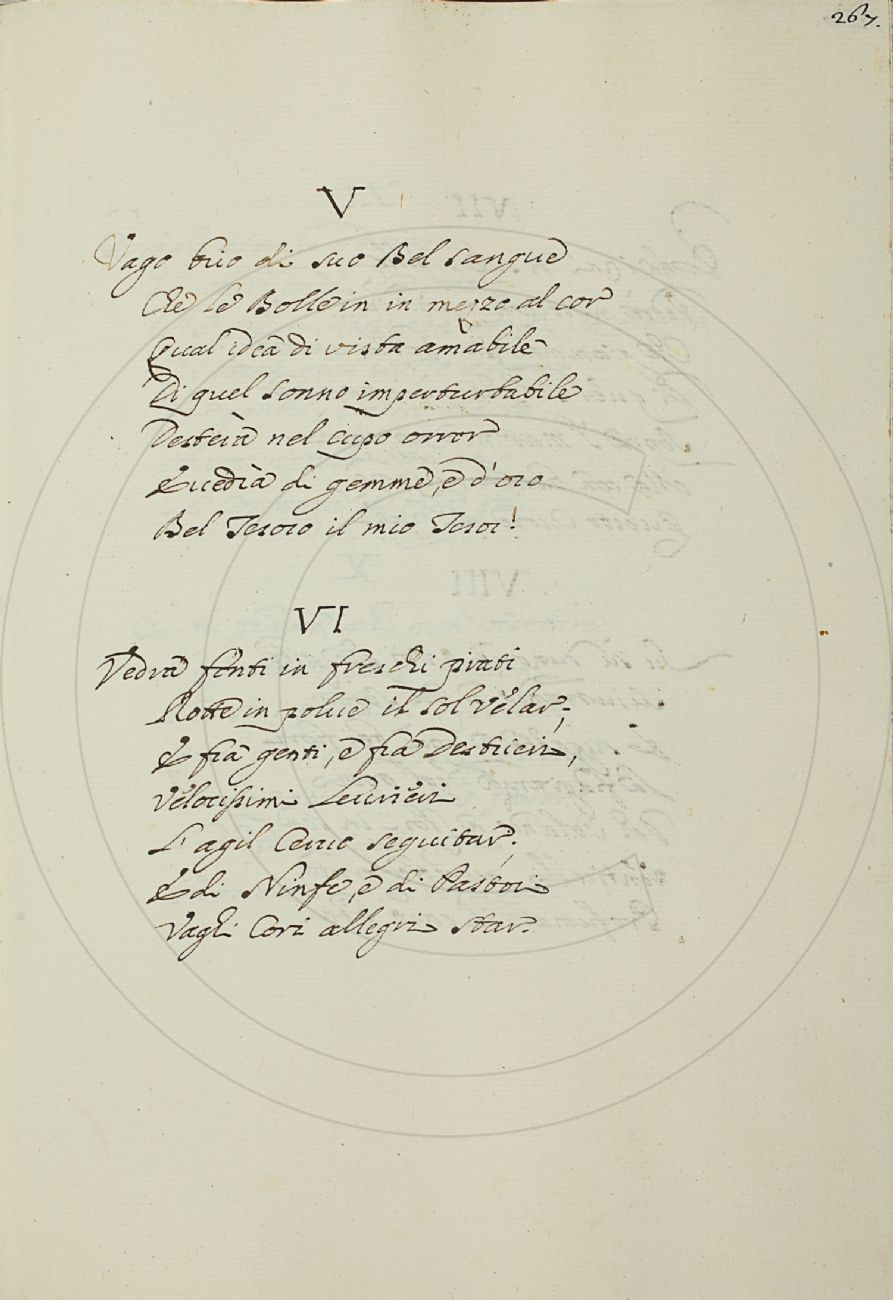 267.
V
Vago brio di suo Bel sangue
Che le Bolle in in mezzo al cor
Qual idea di vista amabile
Di quel sonno imperturbabile
Desterà nel cupo orror
E vedrà di gemme, e d'oro
Bel Tesoro il mio Tesor!
VI
Vedrà fonti in freschi prati
Rotte in polve il sol velar;
E fra genti, e fra Destrieri,
Velocissimi Levrieri
L'agil Cervo seguitar.
E di Ninfe, e di Pastori
Vaghi Cori allegri star.